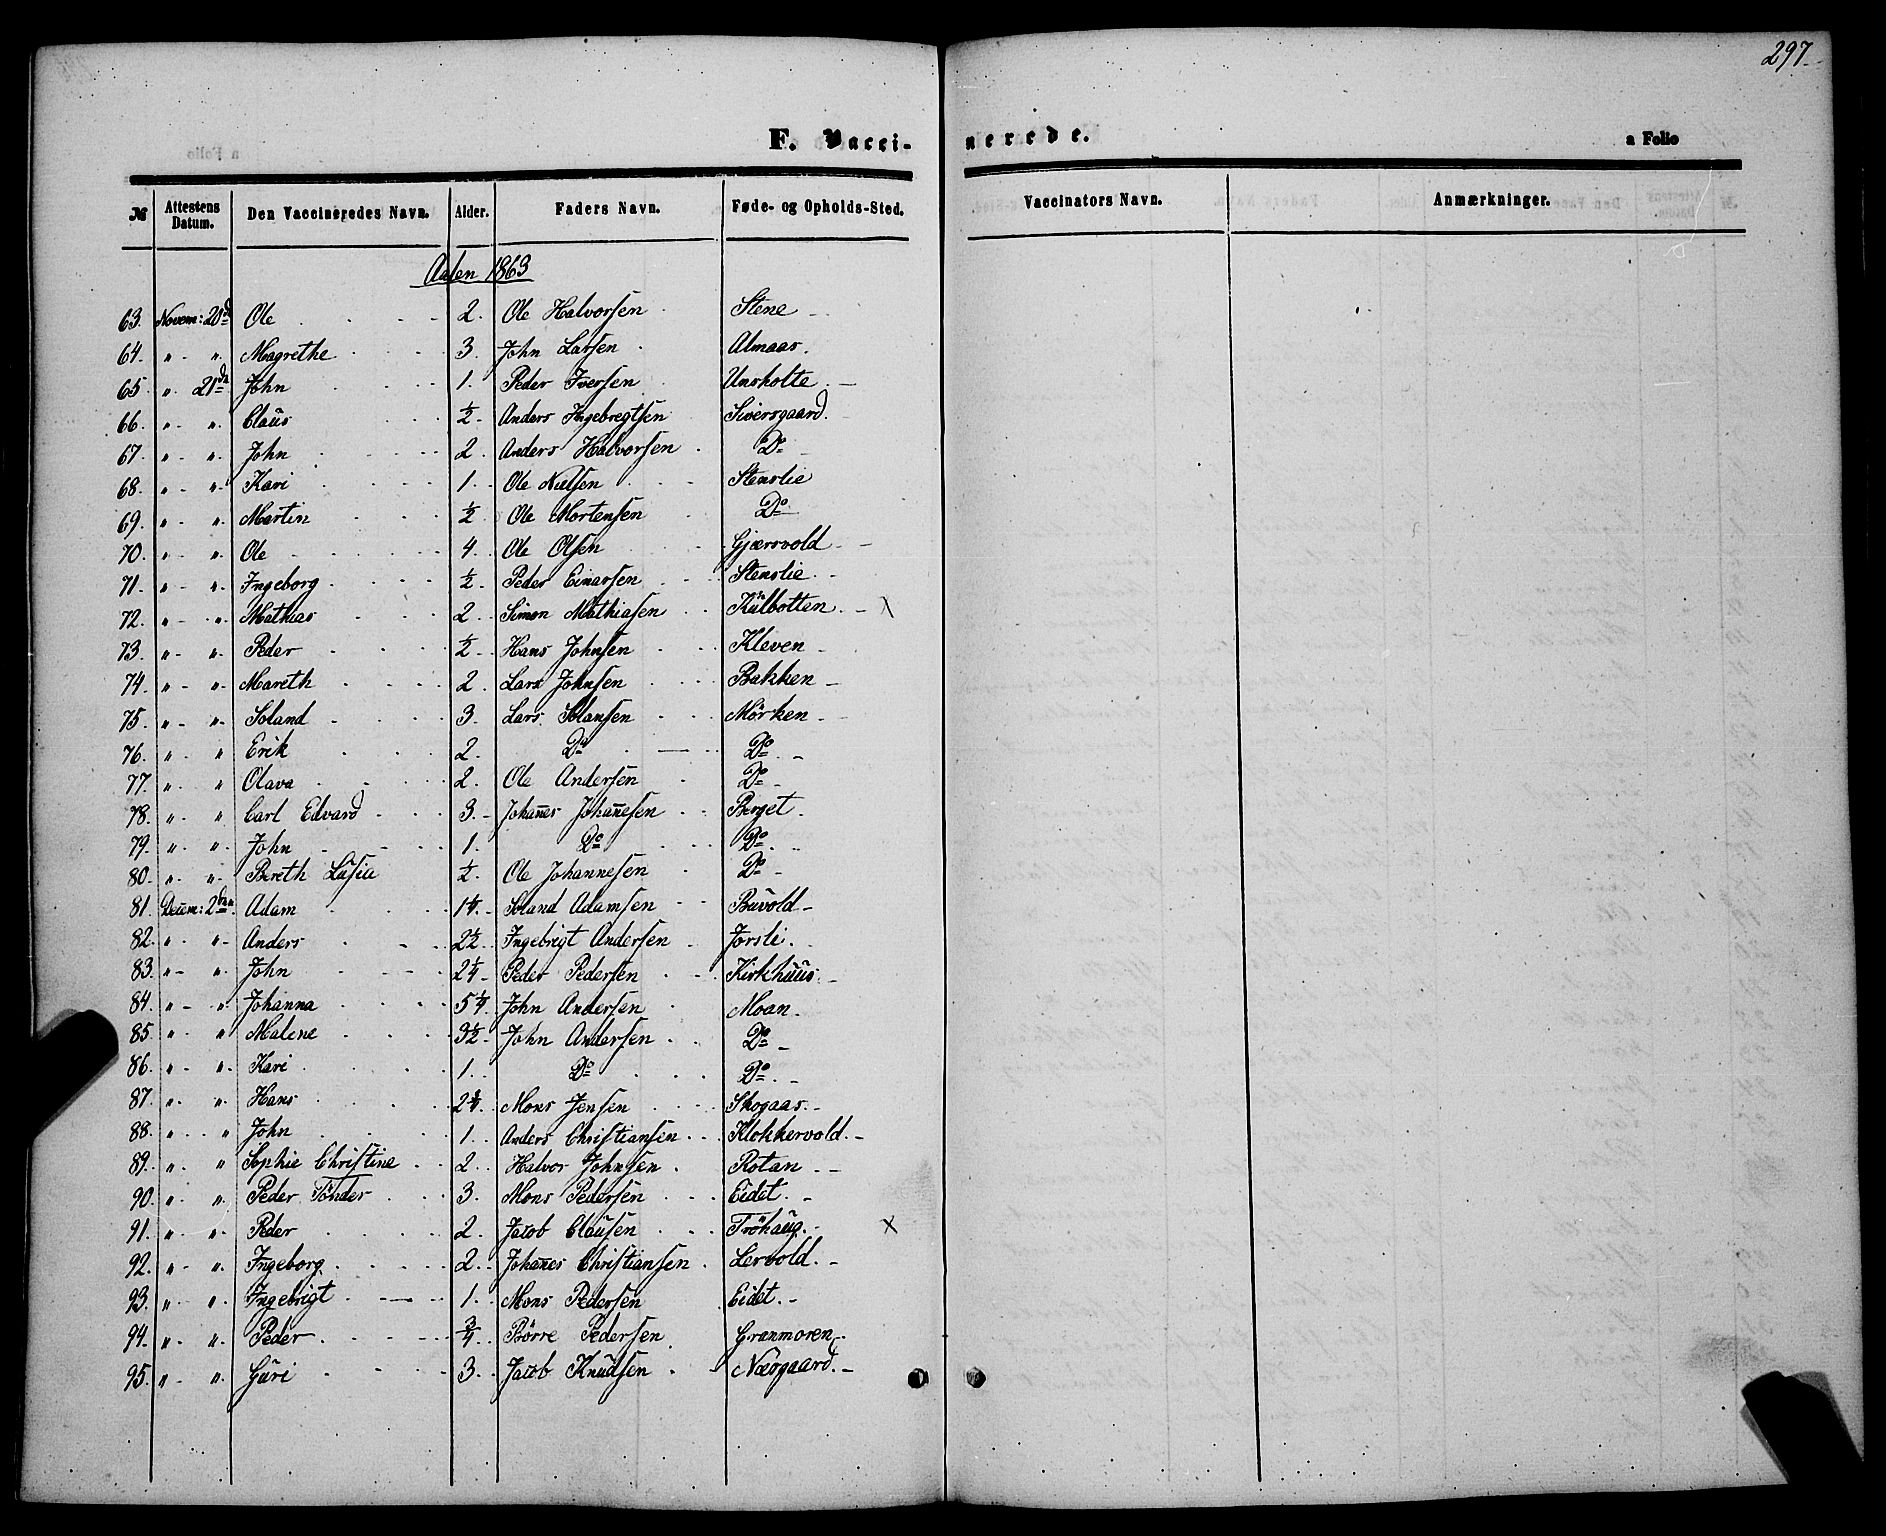 297.
F. Vacci-
nerede.
a Folio
№ Attestens Datum. Den Vaccineredes Navn. Alder. Faders Navn. Føde- og Opholds-Sted. Vaccinators Navn. Anmærkninger.
Aalen 1863
63. Novem: 20de Ole 2. Ole Halvorsen Stene
64. " " Magrethe 3. John Larsen Almaas.
65. " 21de John 1. Peder Iversen Unsholte.
66. " " Claus ½ Anders Ingebregtsen Siversgaard.
67. " " John 2. Anders Halvorsen Do
68. " " Kari 1. Ole Nielsen Stenslie
69. " " Martin ½ Ole Mortensen Do
70. " " Ole 4. Ole Olsen Gjærsvold
71. " " Ingeborg ½ Peder Einarsen Stenslie
72. " " Mathias 2. Simon Mathiasen Kulbotten X
73. " " Peder ½ Hans Johnsen Kleven
74. " " Mareth 2. Lars Johnsen Bakken
75. " " Eland 3. Lars Elansen Mörken
76. " " Erik 2. Do Do
77. " " Olava 2. Ole Andersen Do
78. " " Carl Edvard 3. Johanes Johanesen Berget.
79. " " John 1. Do Do
80. " " Bereth Lusie ½ Ole Johannesen Do
81. Decem: 2den Adam 1¼ Eland Adamsen Buvold
82. " " Anders 2½ Ingebrigt Andersen Jorsli.
83. " " John 2¼ Peder Pedersen Kirkhuus
84. " " Johanna 5¼ John Andersen Moan.
85. " " Malene 3½ John Andersen Do
86. " " Kari 1. Do Do
87. " " Hans 2¼ Mons Jensen Skogaas.
88. " " John 1. Anders Christiansen Klokkervold.
89. " " Sophie Christine 2. Halvor Johnsen Rotan
90. " " Peder Tönder 3. Mons Pedersen Eidet.
91. " " Peder 2. Jacob Clausen Tröhaug. X
92. " " Ingeborg 2. Johanes Christiansen Lervold.
93. " " Ingebrigt 1. Mons Pedersen Eidet.
94. " " Peder ¾ Börre Pedersen Granmoren
95. " " Guri 3. Jacob Knudsen Nærgaard.